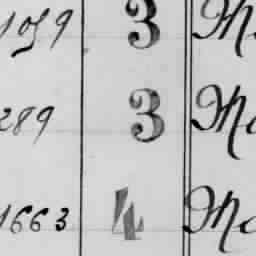 1059 3 Ma
289 3 Ma
1663 4 Ma